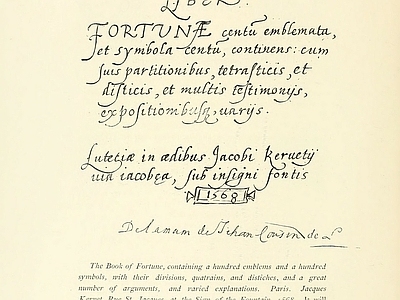 LIBER.
FORTUNÆ centũ emblemata,
et symbola centũ, continens: cum
suis partitionibus, tetrasticis, et
disticis, et multis testimonijs,
expositionibusq, varijs.
Lutetiæ in ædibus Jacobi Keruetij
via iacobęa, sub insigni fontis
1568
De la main de Jehan Cousin de L
The Book of Fortune, containing a hundred emblems and a hundred
symbols, with their divisions, quatrains, and distiches, and a great
number of arguments, and varied explanations. Paris. Jacques
Kervet, Rue St. Jacques, at the Sign of the Fountain, 1568. It will